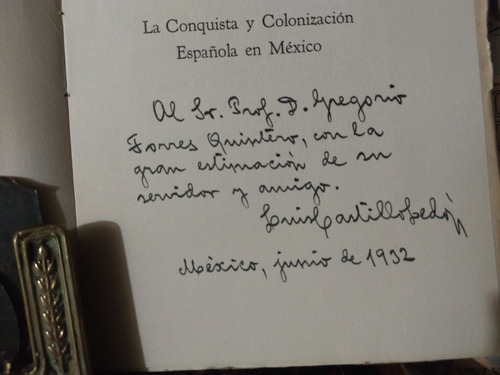 La Conquista y Colonización
Española en México
Al Sr. Prof. D. Gregorio
Torres Quintero, con la
gran estimación de su
servidor y amigo.
Luis Castillo Ledón
México, junio de 1932